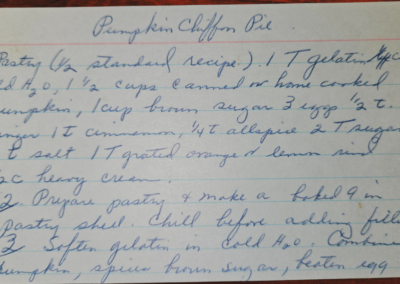 Pumpkin Chiffon Pie
Pastry (½ standard recipe). 1 T gelatin ¼ c
H₂O, 1 ½ cups canned or home cooked
umpkin, 1 cup brown sugar 3 eggs ½ t.
inger 1 t cinnamon, ¼ t allspice 2 T sugar
t salt 1 T grated orange & lemon rind
c heavy cream.
2. Prepare pastry & make a baked 9 in
pastry shell. Chill before adding fill
3 Soften gelatin in cold H₂O. Combine
umpkin, spices brown sugar, beaten egg